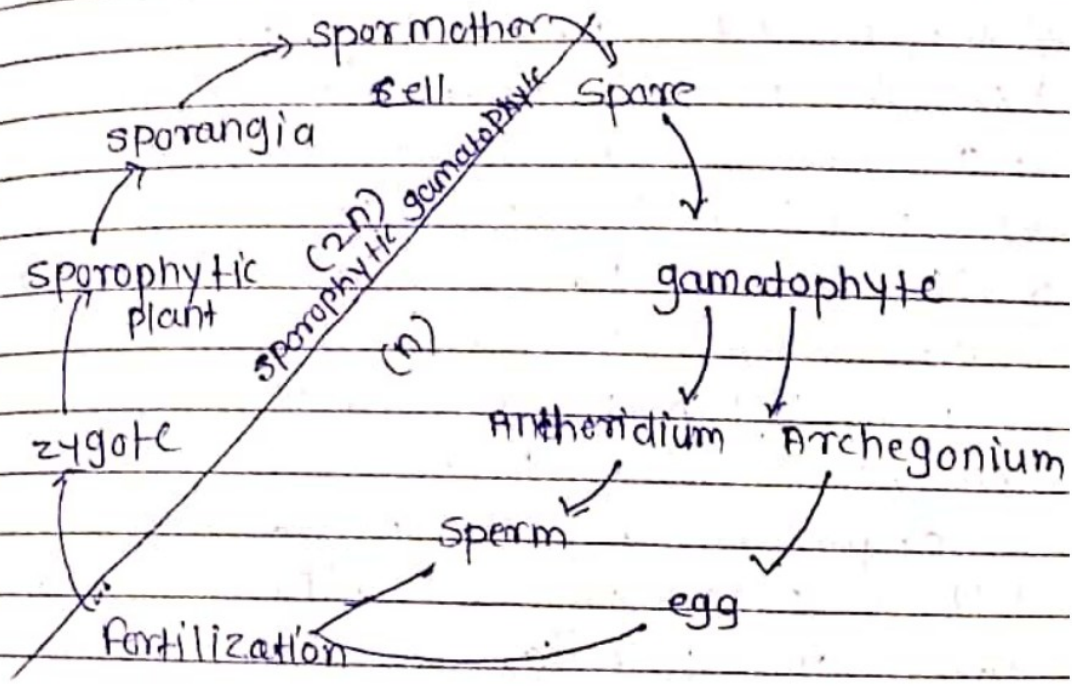 spormother
cell
spore
sporangia
gamatophytic
(2n)
sporophytic
sporophytic
plant
gamatophyte
(n)
zygote
Antheridium
Archegonium
sperm
egg
fertilization